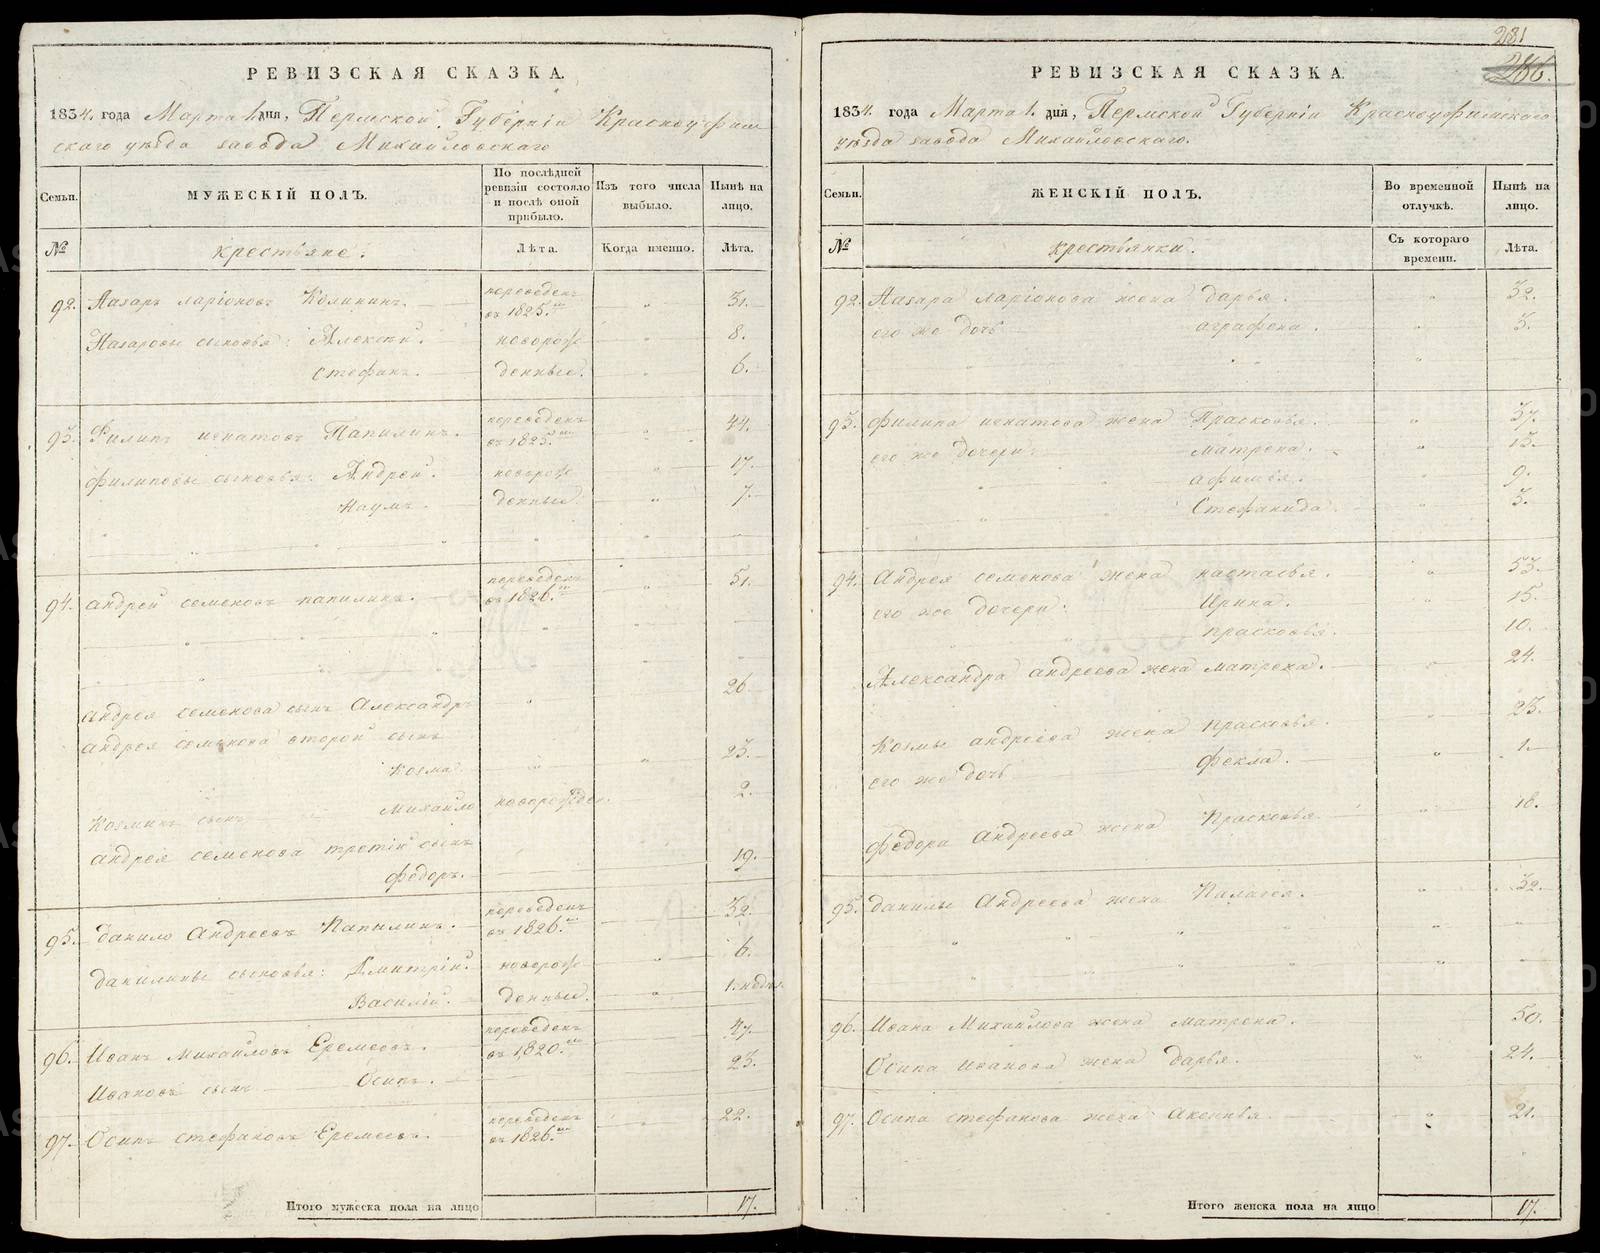 РЕВИЗСКАЯ СКАЗКА.
1834. года Марта 1. дня, Пермской Губерніи Красноуфим
скаго уѣзда завода Михайловскаго
Семьи.
МУЖЕСКІЙ ПОЛЪ.
По послѣдней ревизіи состояло и послѣ оной прибыло.
Изъ того числа выбыло.
Нынѣ на лицо.
№
крестьяне.
Лѣта.
Когда именно.
Лѣта.
92. Назаръ ларіоновъ Калининъ. переведенъ въ 1825. " 31.
Назаровы сыновья: Алексѣй. новорож " 8.
Стефанъ. денные. " 6.
93. Филипъ игнатовъ Папилинъ. переведенъ въ 1825. " 44.
филиповы сыновья: Андрей. новорож " 17.
Наумъ. денные. " 7.
94. андрей семеновъ папилинъ. переведенъ въ 1826. " 51.
андрея семенова сынъ Александръ " 26
андрея семенова второй сынъ
Козма. " " 23.
Козминъ сынъ Михайло новорожден. 2.
андрея семенова третій сынъ
федоръ. 19.
95. данило Андреевъ Папилинъ. переведенъ въ 1826. 32.
данилины сыновья: Дмитрій. новорож " 6.
Василій. денные. " 1. недѣл.
96. Иванъ Михайловъ Еремеевъ. переведенъ въ 1820. 47.
Ивановъ сынъ Осипъ. 23.
97. Осипъ стефановъ Еремеевъ. переведенъ въ 1826. 22.
Итого мужеска пола на лицо 17.
281
286.
РЕВИЗСКАЯ СКАЗКА.
1834. года Марта 1. дня, Пермской Губерніи Красноуфимскаго
уѣзда завода Михайловскаго.
Семьи.
ЖЕНСКІЙ ПОЛЪ.
Во временной отлучкѣ.
Нынѣ на лицо.
№
крестьянки.
Съ котораго времени.
Лѣта.
92. Назара ларіонова жена дарья. " 32.
его же дочь аграфена. " 3.
93. филипа игнатова жена Прасковья. " 37.
его же дочери: матрена. " 13.
афимья. " 9.
Стефанида " 3.
94. андрея семенова жена настасья. " 53.
его же дочери: Ирина. " 15.
прасковья. 10.
Александра андреева жена матрена. " 24.
Козмы андреева жена прасковья. " 23.
его же дочь фекла. " 1.
федора Андреева жена Прасковья " 18.
95. данилы Андреева жена Палагея. " 32.
96. Ивана Михайлова жена матрена. 50.
Осипа иванова жена дарья. " 24.
97. Осипа стефанова жена Аксинья " 21.
Итого женска пола на лицо 17.